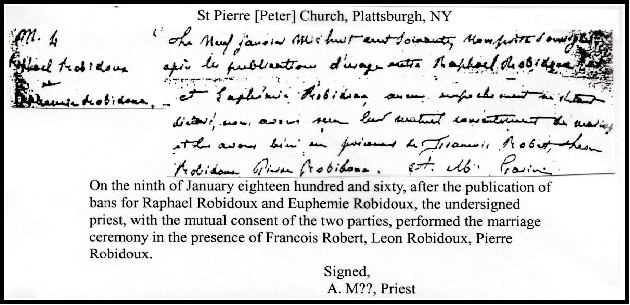 St Pierre [Peter] Church, Plattsburgh, NY
M. 4
Raphael Robidoux
et
Euphemie Robidoux.
Le Neuf janvier mil huit cent soixante, nous prêtre soussigné
après la publication d'usage entre Raphael Robidoux
et Euphémie Robidoux aucun empêchement
nous avons leur mutuel consentement de mariage
et les avons béni en présence de Francois Robert, Leon
Robidoux Pierre Robidoux.
On the ninth of January eighteen hundred and sixty, after the publication of
bans for Raphael Robidoux and Euphemie Robidoux, the undersigned
priest, with the mutual consent of the two parties, performed the marriage
ceremony in the presence of Francois Robert, Leon Robidoux, Pierre
Robidoux.
Signed,
A. M??, Priest